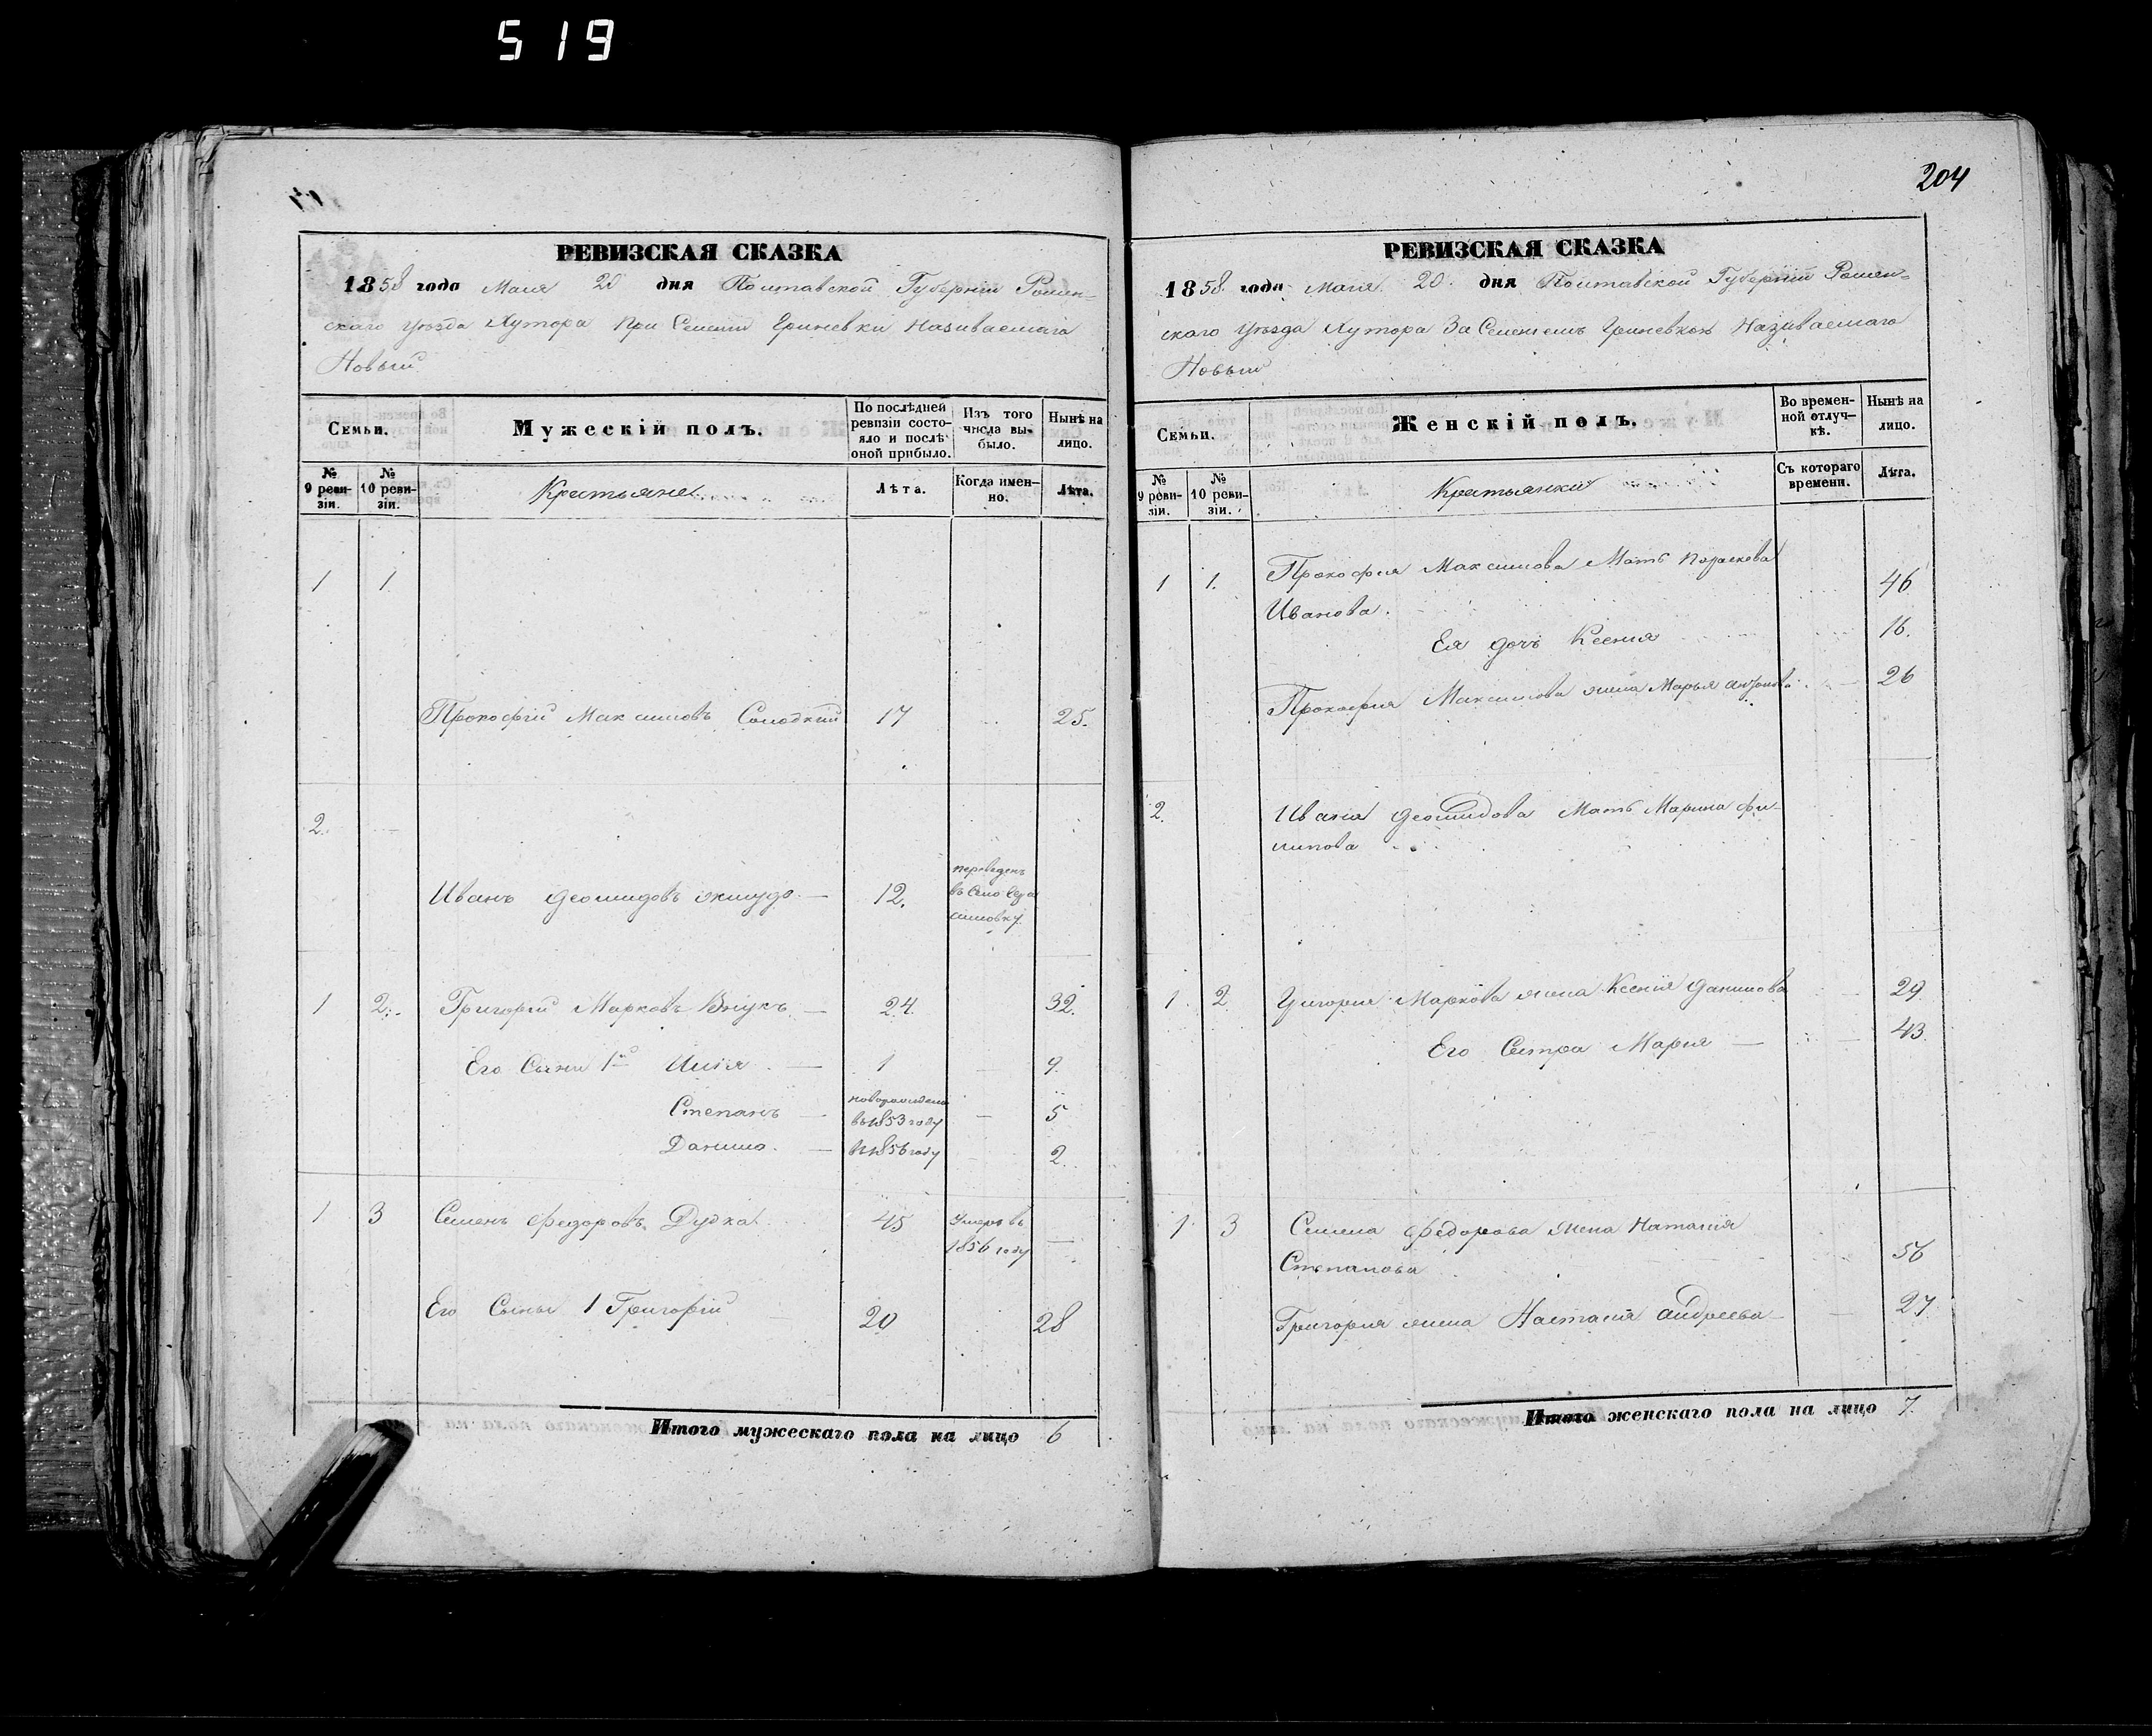 519
204
РЕВИЗСКАЯ СКАЗКА
1858 года Маія 20 дня Полтавской Губерніи Ромен-
скаго уѣзда Хутора при Селеніи Гриневки Называемаго
Новый
Семьи.
Мужескій полъ.
По послѣдней ревизіи состояло и послѣ оной прибыло.
Изъ того числа выбыло.
Нынѣ на лицо.
№ 9 ревизіи.
№ 10 ревизіи.
Крестьяне
Лѣта.
Когда именно.
Лѣта.
1 1
Прокофій Максимовъ Солодкий 17 25.
2.
Иванъ 12.
переведенъ
въ Село
1 2. Григорій Марковъ Внукъ — 24. 32.
Его Сыны 1й Илія — 1 9.
Степанъ — новорожденъ
въ 1853 году — 5
Данило. — въ 1856 году 2.
1 3 Семенъ Федоровъ Дудка 45 Умеръ въ
1856 году —
Его Сыны 1 Григорій 20 28
Итого мужескаго пола на лицо 6
РЕВИЗСКАЯ СКАЗКА
1858 года Маія 20 дня Полтавской Губерніи Ромен-
скаго уѣзда Хутора За Селеніемъ Гриневкою Называемаго
Новый
Семьи.
Женскій полъ.
Во временной отлучкѣ.
Нынѣ на лицо.
№ 9 ревизіи.
№ 10 ревизіи.
Крестьянки
Съ котораго времени.
Лѣта.
1 1. Прокофія Максимова Мать Параскева
Иванова. 46
Ея дочь Ксенія 16.
Прокофія Максимова жена Марья 26
2. Ивана Мать Марина Фи-
липова
1. 2. Григорія Маркова жена Ксенія Данилова 29
Его Сестра Марія — 43.
1. 3 Семена Федорова жена Наталія
Степанова 56
Григорія жена Настасія Андреева — 27.
Итого женскаго пола на лицо 7.